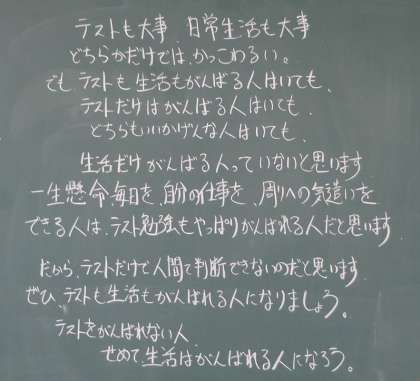 テストも大事 日常生活も大事
どちらかだけでは、かっこわるい。
でも、テストも生活もがんばる人はいても、
テストだけはがんばる人はいても、
どちらもいいかげんな人はいても、
生活だけがんばる人っていないと思います
一生懸命毎日を、自分の仕事を、周りへの気遣いを
できる人は、テスト勉強もやっぱりがんばれる人だと思います
だから、テストだけで人間て判断できないのだと思います
ぜひ、テストも生活もがんばれる人になりましょう。
テストをがんばれない人、
せめて生活はがんばれる人になろう。